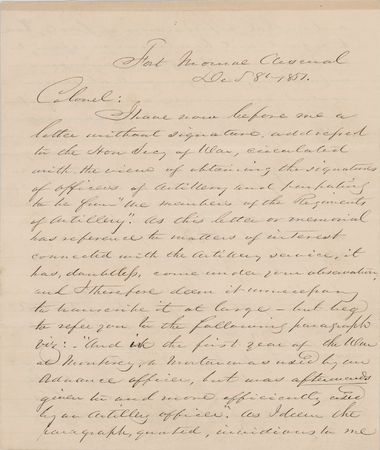 Fort Monroe Arsenal
Dec 8th 1851.
Colonel:
I have now before me a
letter without signature, addressed
to the Hon Secy of War, circulated
with the view of obtaining the signatures
of officers of Artillery, and purporting
to be from "the members of the Regiments
of Artillery". As this letter or memorial
has reference to matters of interest
connected with the Artillery service, it
has, doubtless, come under your observation
and I therefore deem it unnecessary
to transcribe it at large - but beg
to refer you to the following paragraph
viz: - "And in the first year of the War
at Monterey, a Mortar was used by an
Ordnance officer, but was afterwards
given to and more efficiently used
by an Artillery officer". As I deem the
paragraph, quoted, invidious to me